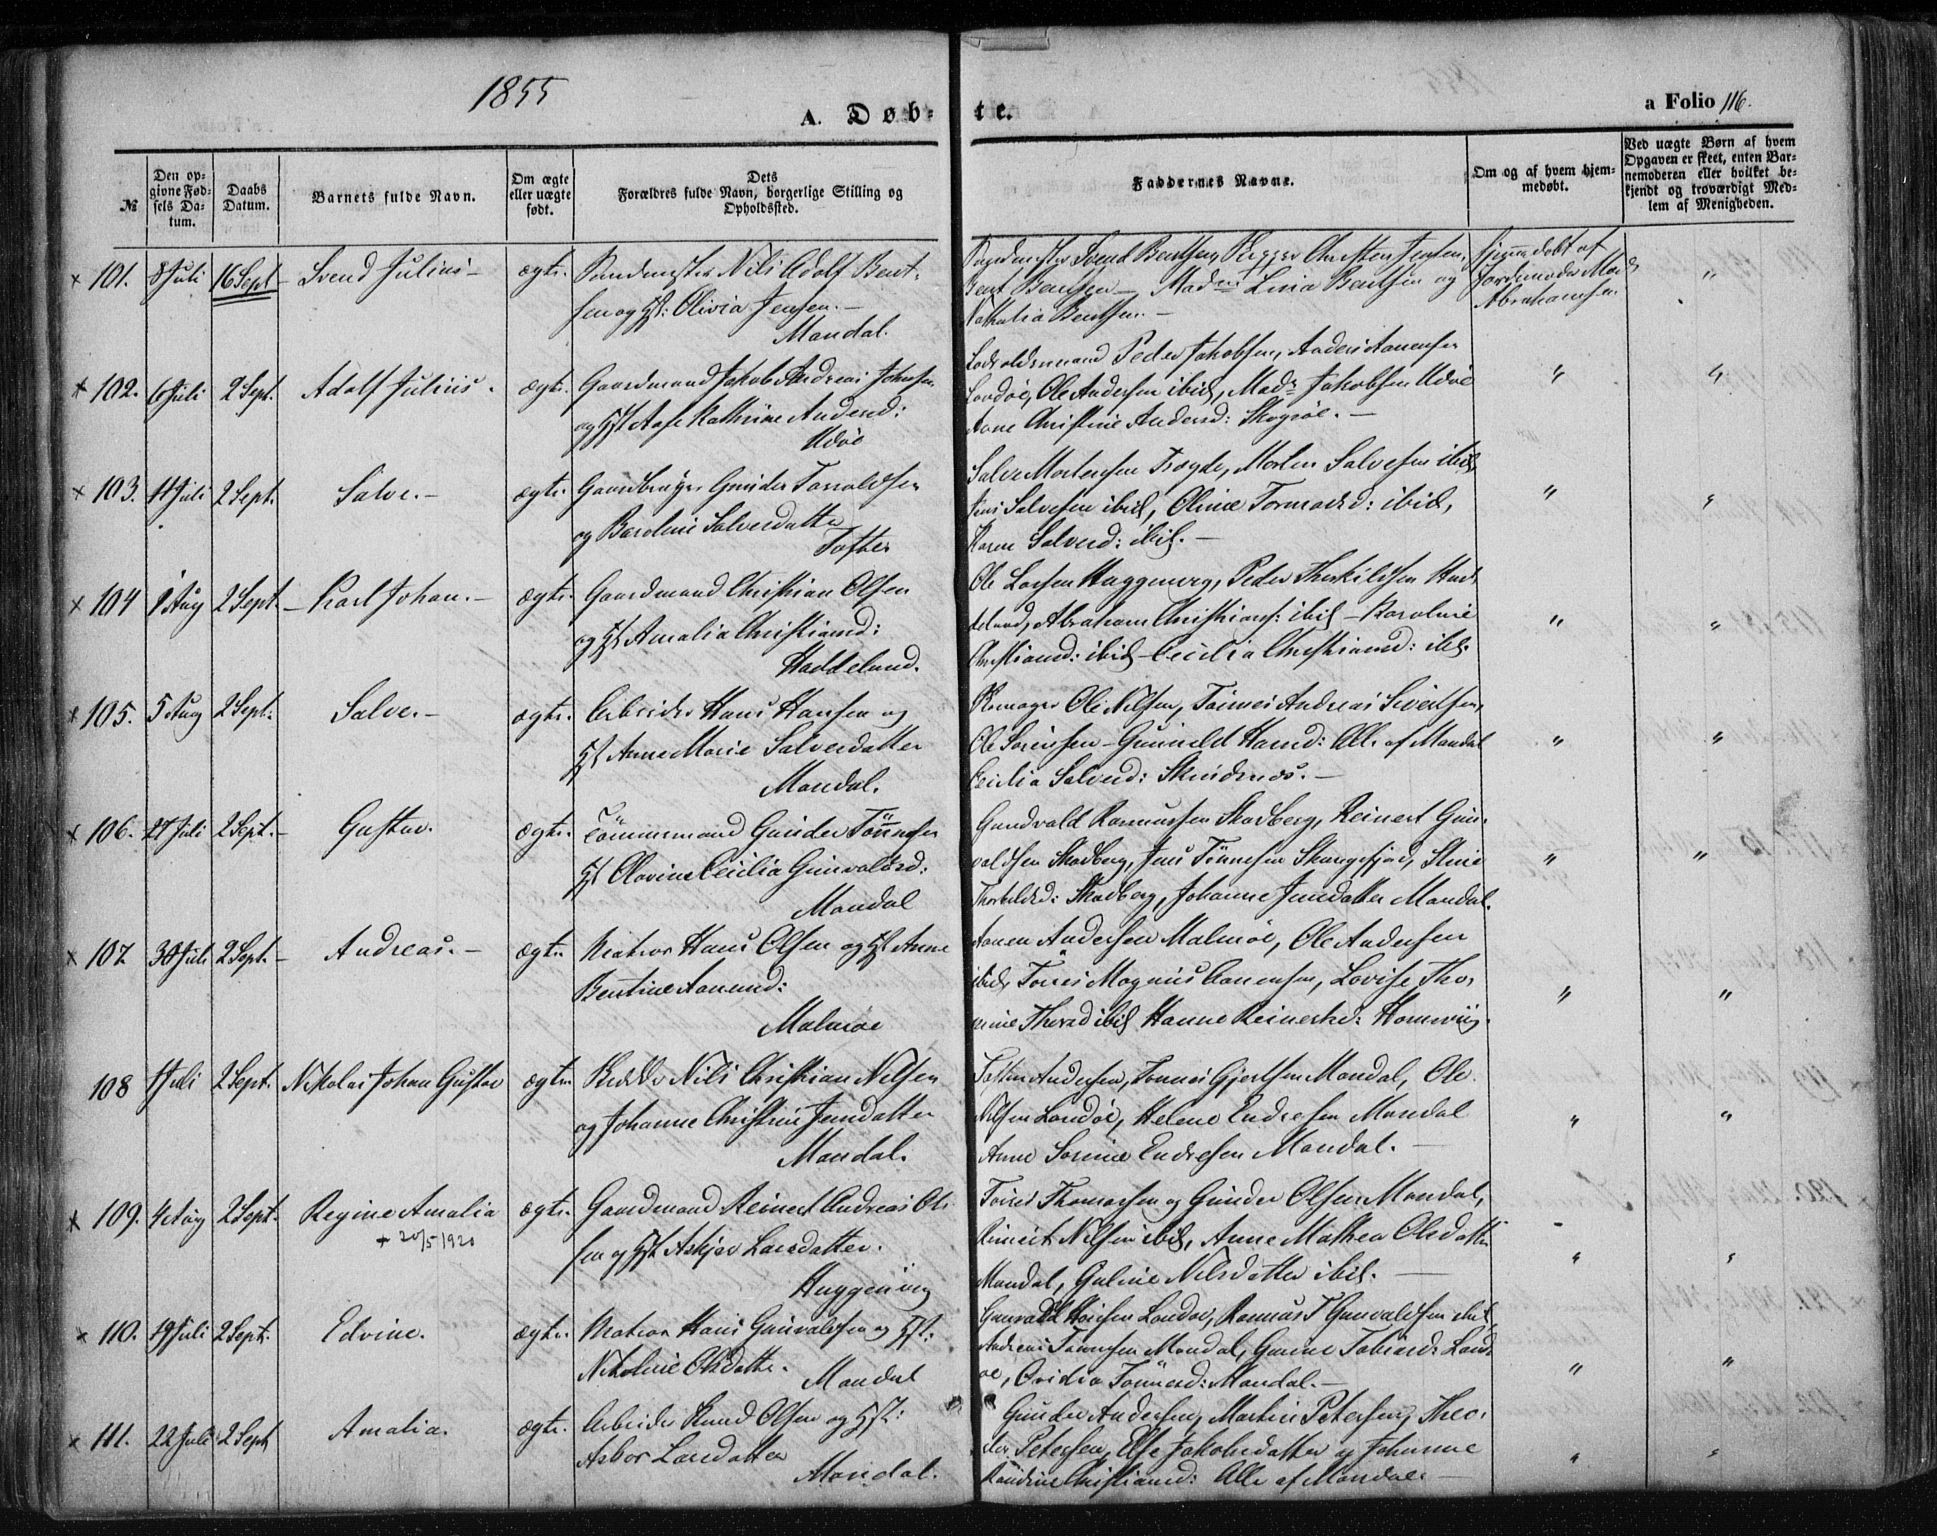 1855
A. Døb-
te.
a Folio 116.
№
Den op-
givne Fød-
sels Da-
tum.
Daabs
Datum.
Barnets fulde Navn.
Om ægte
eller uægte
født.
Dets
Forældres fulde Navn, borgerlige Stilling og
Opholdssted.
Faddernes Navne.
Om og af hvem hjem-
medøbt.
Ved uægte Børn af hvem
Opgaven er skeet, enten Bar-
nemoderen eller hvilket be-
kjendt og troværdigt Med-
lem af Menigheden.
× 101. 8 Juli 16 Sept Svend Julius – ægte. Nils Adolf Bent-
sen og Hst: Olivia Jensen. –
Mandal.
Svend Bentsen,
Bent Bentsen – Mad Lina Bentsen og
Nathalia Bentsen. –
Hjemmedøbt af
Jordemoder Mad
Abrahamsen
"
× 102. 6 Juli 2 Sept. Adolf Julius. ægte. Gaardmand Jakob Andreas Johnsen
og Hst Aase Kathrine Andersd:
Udøe
Lodsoldermand Peder Jakobsen, Anders Aanensen
Landøe, Ole Andersen ibid, Mad. Jakobsen Udøe
Anne Christine Andersd: Skogsøe. –
" "
× 103. 11 Juli 2 Sept. Salve. – ægte. Gaardbruger Gunder Torvaldsen
og Karoline Salvesdatter
Tofter
Salve Mortensen Tregde, Morten Salvesen ibid,
Jens Salvesen ibid, Oline Tormodsd: ibid,
Karen Salvesd: ibid. –
" "
× 104 9 Aug 2 Sept. – Karl Johan. – ægte. Gaardmand Christian Olsen
og Hst Amalia Christiansd:
Haddeland.
Ole Larsen Huggenvig, Peder Therkildsen Had-
deland, Abraham Christians: ibid – Karoline
Christiansd: ibid – Cecilia Christiansd: ibd.
" "
× 105. 5 Aug 2 Sept. Salve. – ægte. Arbeider Hans Hansen og
Hst Anne Marie Salvesdatter
Mandal.
Ole Nilsen, Tønnes Andreas Sivertsen,
Ole Sørensen – Gunild Hansd: Alle af Mandal
Cecilia Salvesd: Skindsnes. –
" "
× 106. 27 Juli 2 Sept. – Gustav. ægte. Tømmermand Gunder Tønnesen
Hst Olavine Cecilia Gunvaldsd:
Mandal
Gundvald Rasmussen Skadberg, Reinert Gun-
valdsen Skadberg, Jens Tønnesen Skangefjed, Stine
Skadberg, Johanne Jensdatter Mandal.
" "
× 107 30 Juli 2 Sept. – Andreas. – ægte. Matros Hans Olsen og Hst Anne
Bentine Aanensd:
Malmøe
Aanen Andersen Malmøe, Ole Andersen
ibid, Torres Magnus Aanensen, Lovise Tho-
mine ibid Hanne Reinertsd: Homsviig.
" "
108 1 Juli 2 Sept. Nikolai Johan Gustav ægte Nils Christian Nilsen
og Johanne Christine Jensdatter
Mandal.
Andersen, Tønnes Gjertsen Mandal, Ole
Nilsen Landøe, Helene Endresen Mandal
Anne Sorine Endresen Mandal. –
" "
× 109. 4 Aug 2 Sept. Regine Amalia ægte. Gaardmand Reinert Andreas Ol-
+ 20/5 1920
sen og Hst Askjer Larsdatter.
Huggenviig
Torres Thomassen og Gunder Olsen Mandal,
Reinert Nilsen ibid, Anne Mathea Olsdatter
Mandal, Guline Nilsdatter ibid. –
" "
× 110. 19 Juli 2 Sept. Edvine. ægte. Matros Hans Gunvaldsen og Hst:
Nikoline Olsdatter. Mandal
Gunvald Hansen Landøe, Rasmus T Gunvaldsen ibid,
Andreas Tønnesen Mandal, Gunne Tobiasd: Land-
øe, Ovidia Tønnesd: Mandal. –
" "
× 111. 22 Juli 2 Sept Amalia. ægte. Arbeider Knud Olsen og Hst:
Asbor Larsdatter
Mandal.
Gunder Andersen, Martin Petersen, Theo-
dor Petersen, Else Jakobsdatter og Johanne
Christiansd: Alle af Mandal.
" "